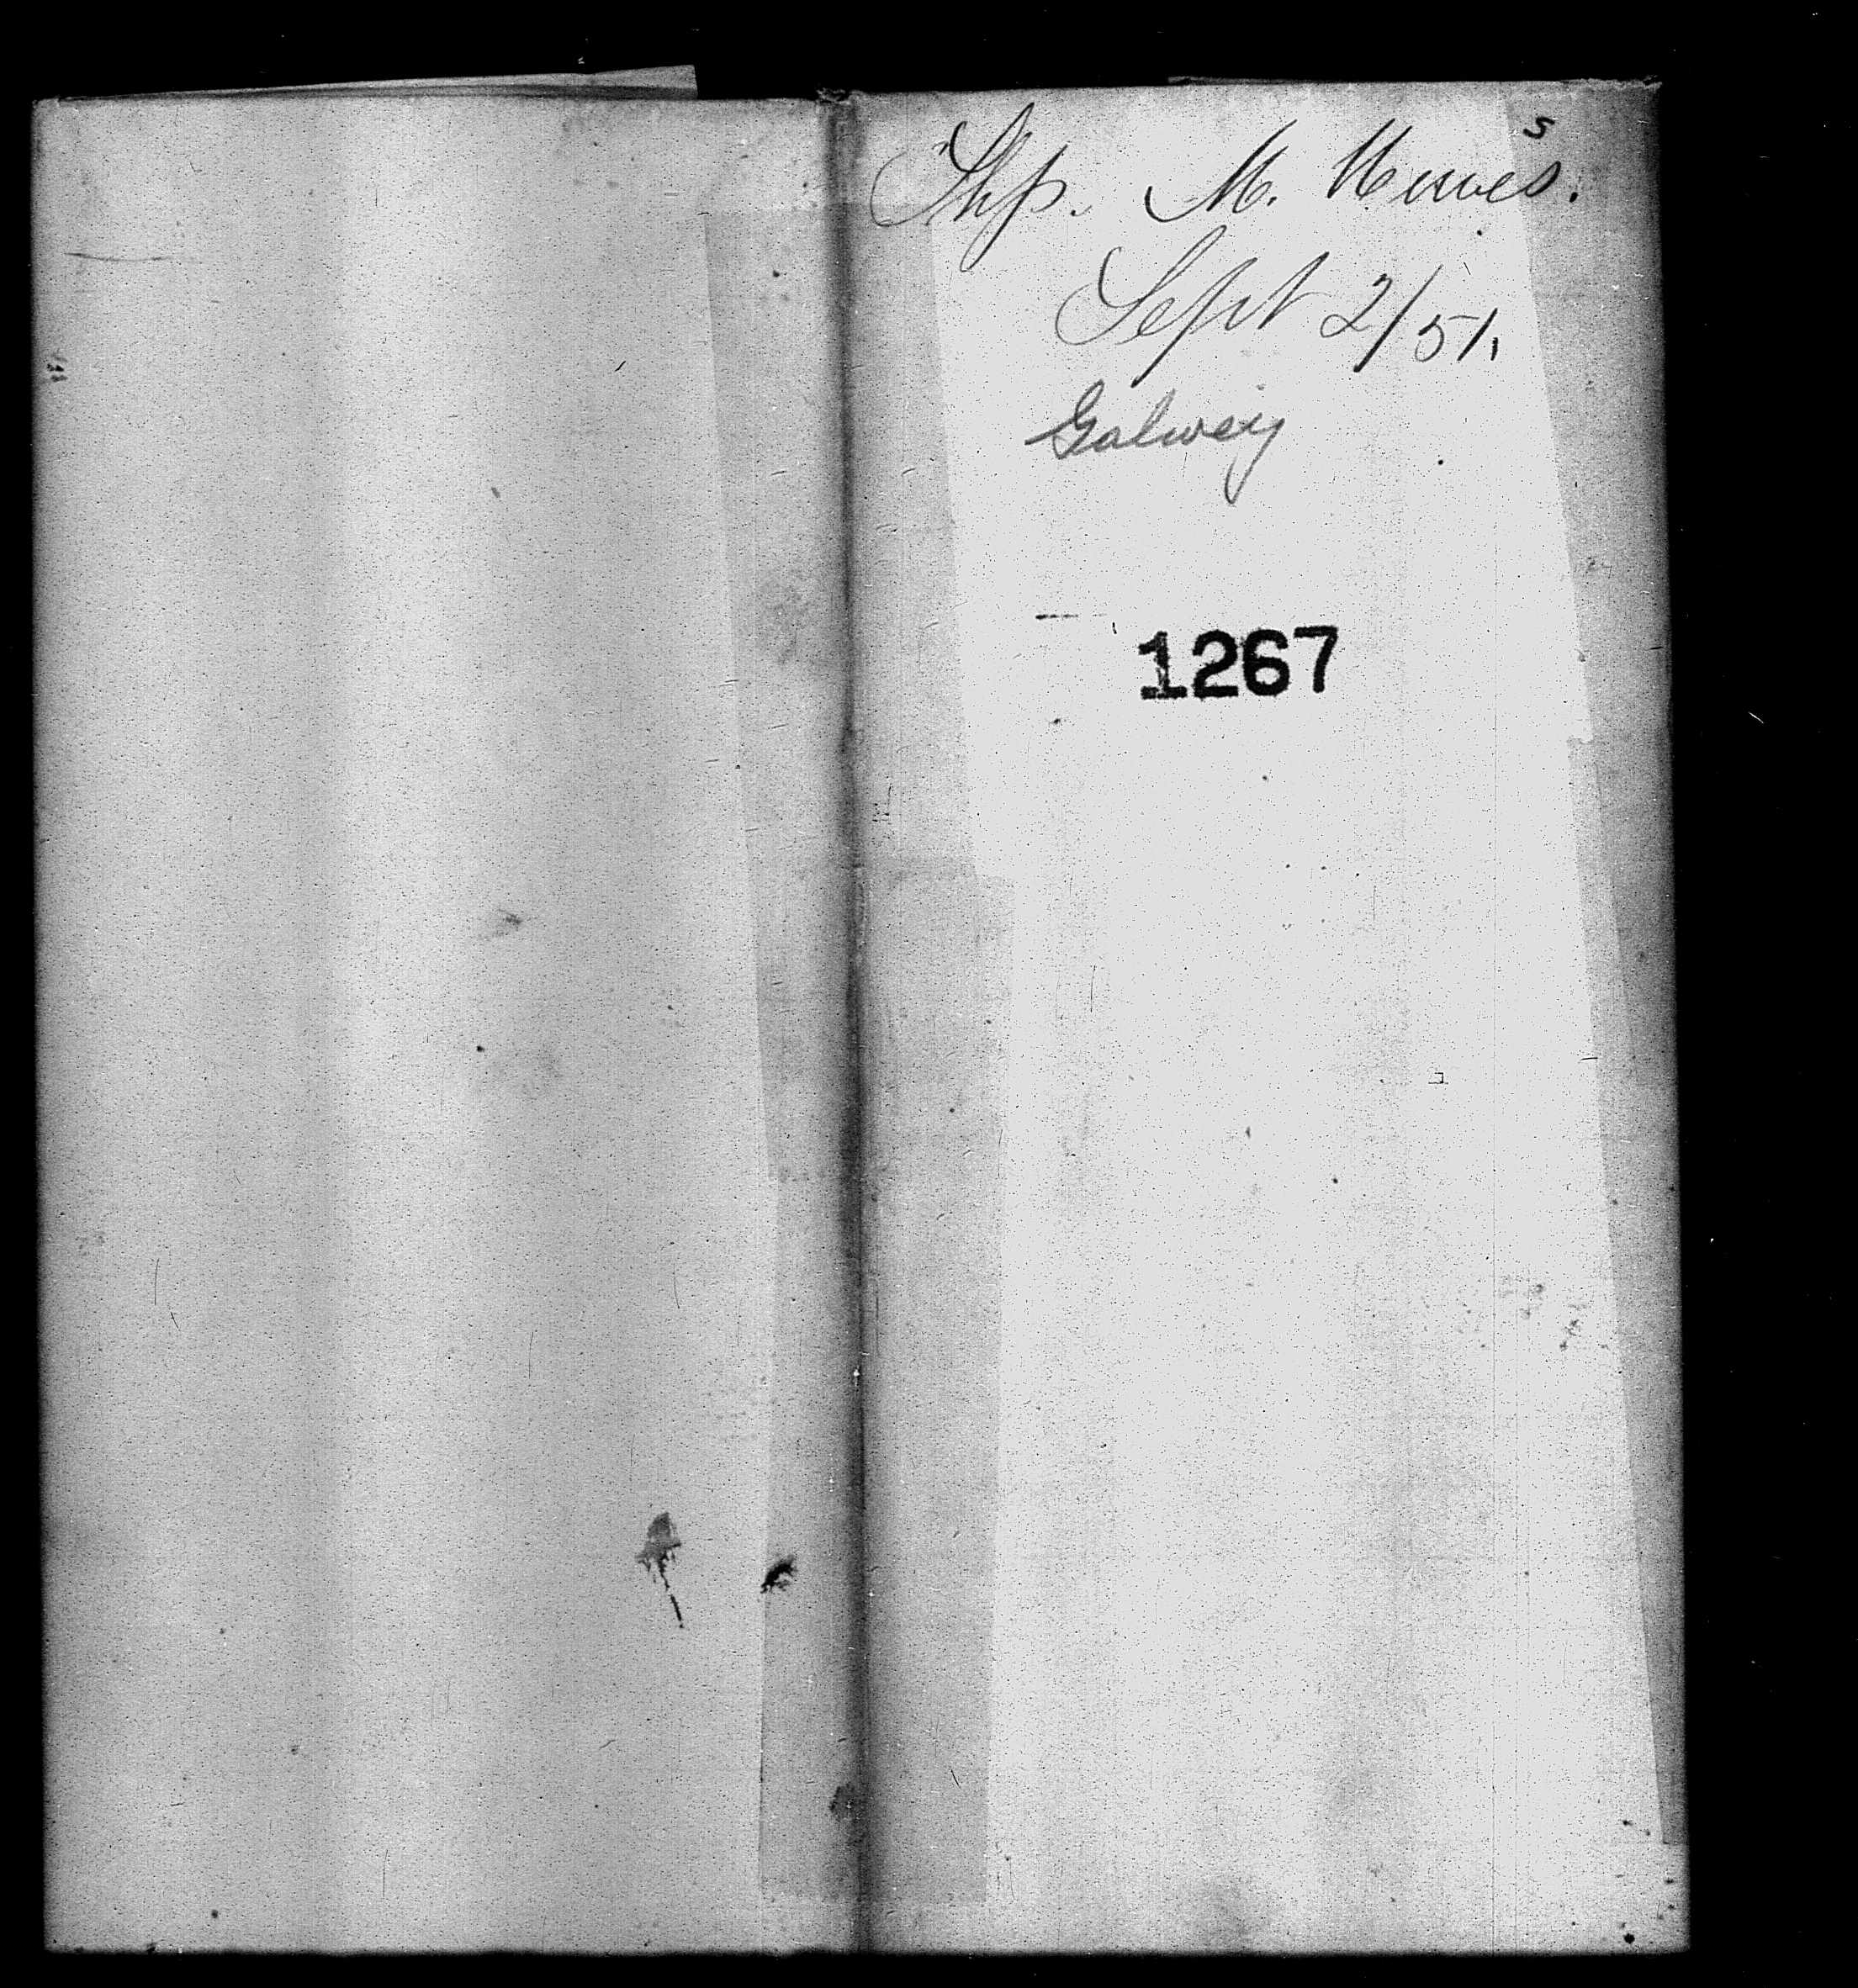 Shp. M. Hawes.
s
Sept 2/51,
Galway
1267